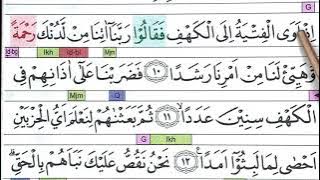 إِذْ أَوَى الْفِتْيَةُ إِلَى الْكَهْفِ فَقَالُوْا رَبَّنَآ اٰتِنَا مِنْ لَّدُنْكَ رَحْمَةً
G
id-bg Ikh id-bl Mjm
وَّهَيِّئْ لَنَا مِنْ اَمْرِنَا رَشَدًا ۝١٠ فَضَرَبْنَا عَلٰٓى اٰذَانِهِمْ فِى
Mjm Q
الْكَهْفِ سِنِيْنَ عَدَدًا ۝١١ ثُمَّ بَعَثْنٰهُمْ لِنَعْلَمَ اَيُّ الْحِزْبَيْنِ
G Ikh
اَحْصٰى لِمَا لَبِثُوْٓا اَمَدًا ۝١٢ نَحْنُ نَقُصُّ عَلَيْكَ نَبَاَهُمْ بِالْحَقِّ
G